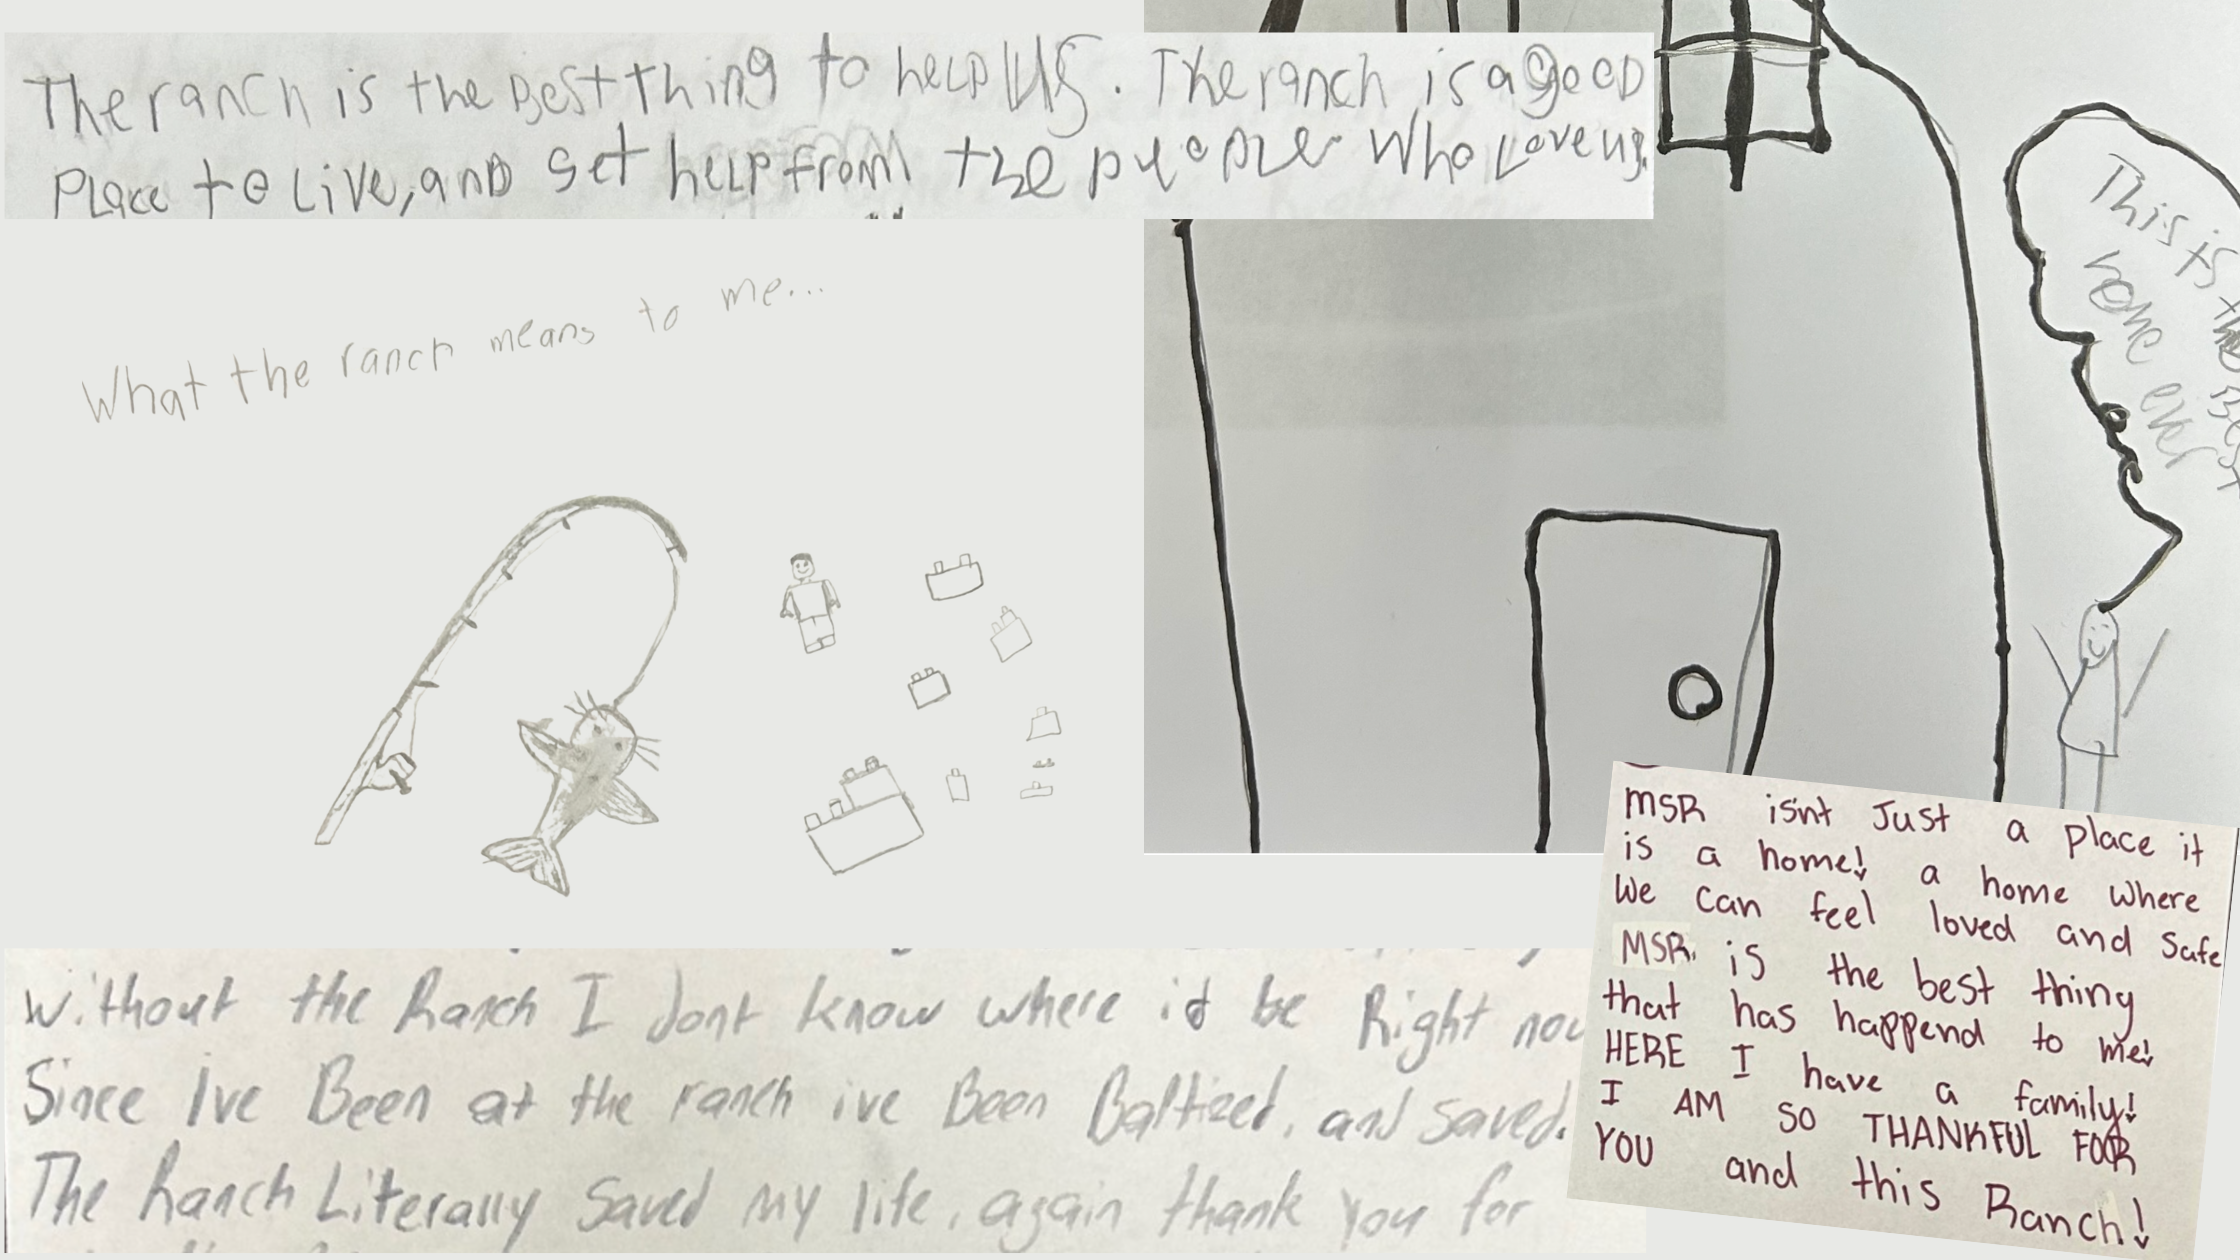 The ranch is the Best thing to help us. The ranch is a good
Place to Live, and get help from the people who Love us.
What the ranch means to me...
This is the Best
rome ever
Without the Ranch I dont know where id be Right now
Since Ive Been at the ranch ive Been Baltized, and saved.
The Ranch Literally Saved my life, again thank you for
MSR isnt Just a place it
is a home! a home where
we can feel loved and safe
MSR. is the best thing
that has happend to me!
HERE I have a family!
I AM SO THANKFUL FOR
YOU and this Ranch!